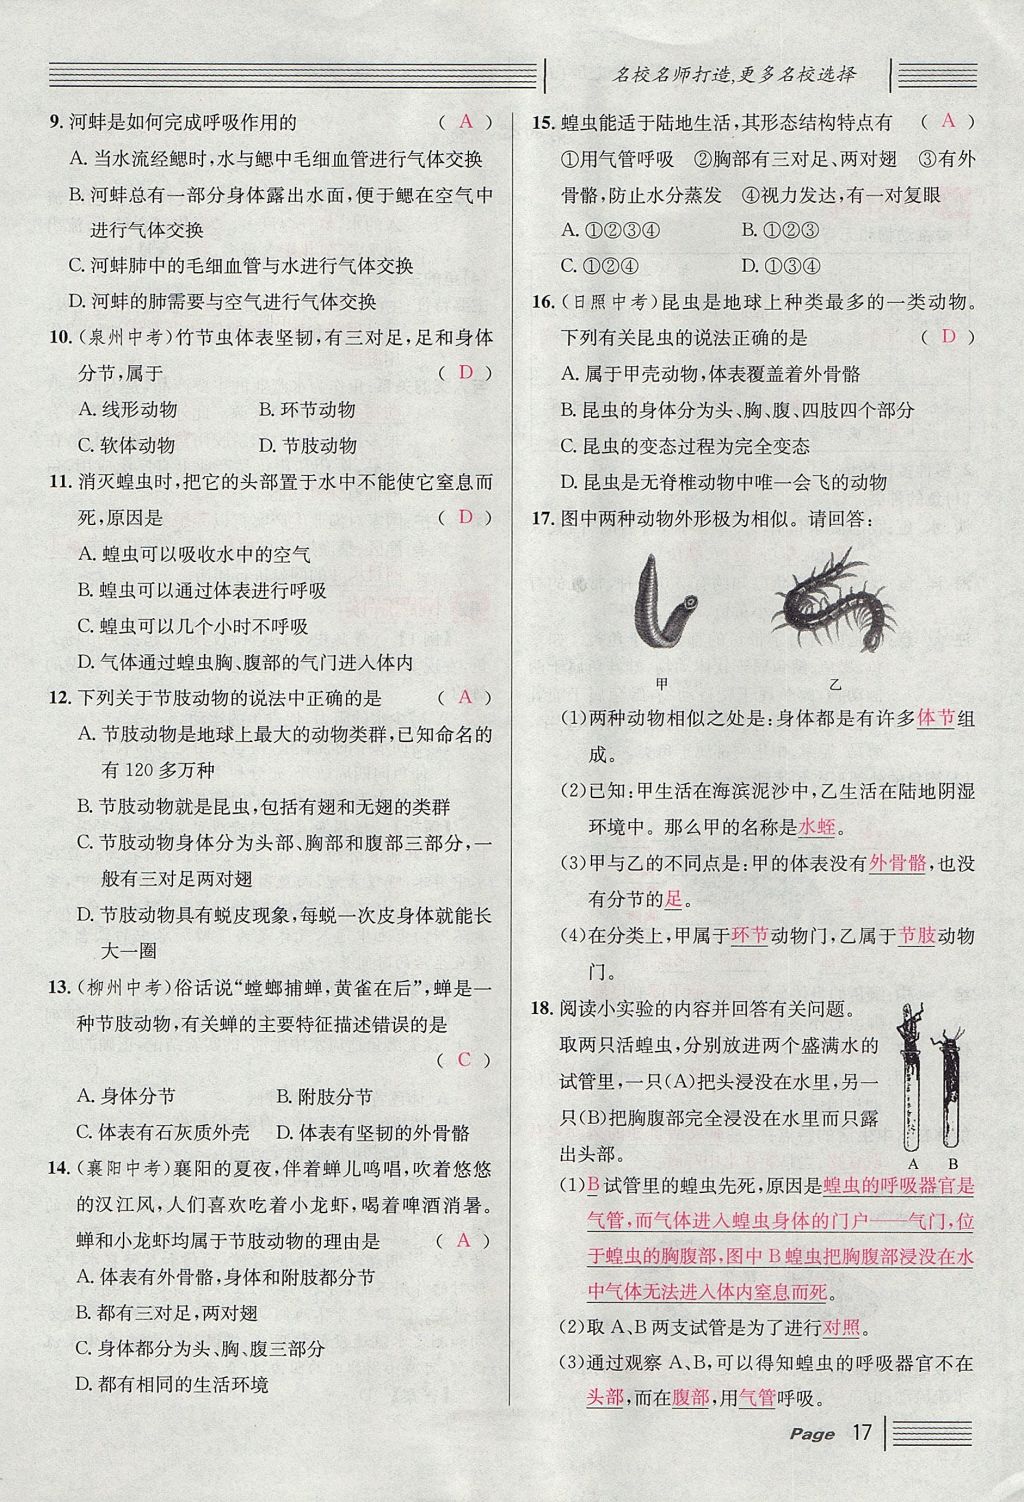 名校名师打造,更多名校选择
9. 河蚌是如何完成呼吸作用的 ( A )
A. 当水流经鳃时,水与鳃中毛细血管进行气体交换
B. 河蚌总有一部分身体露出水面,便于鳃在空气中
进行气体交换
C. 河蚌肺中的毛细血管与水进行气体交换
D. 河蚌的肺需要与空气进行气体交换
10. (泉州中考)竹节虫体表坚韧,有三对足,足和身体
分节,属于 ( D )
A. 线形动物 B. 环节动物
C. 软体动物 D. 节肢动物
11. 消灭蝗虫时,把它的头部置于水中不能使它窒息而
死,原因是 ( D )
A. 蝗虫可以吸收水中的空气
B. 蝗虫可以通过体表进行呼吸
C. 蝗虫可以几个小时不呼吸
D. 气体通过蝗虫胸、腹部的气门进入体内
12. 下列关于节肢动物的说法中正确的是 ( A )
A. 节肢动物是地球上最大的动物类群,已知命名的
有 120 多万种
B. 节肢动物就是昆虫,包括有翅和无翅的类群
C. 节肢动物身体分为头部、胸部和腹部三部分,一
般有三对足两对翅
D. 节肢动物具有蜕皮现象,每蜕一次皮身体就能长
大一圈
13. (柳州中考)俗话说“螳螂捕蝉,黄雀在后”,蝉是一
种节肢动物,有关蝉的主要特征描述错误的是
( C )
A. 身体分节 B. 附肢分节
C. 体表有石灰质外壳 D. 体表有坚韧的外骨骼
14. (襄阳中考)襄阳的夏夜,伴着蝉儿鸣唱,吹着悠悠
的汉江风,人们喜欢吃着小龙虾,喝着啤酒消暑。
蝉和小龙虾均属于节肢动物的理由是 ( A )
A. 体表有外骨骼,身体和附肢都分节
B. 都有三对足,两对翅
C. 身体都分为头、胸、腹三部分
D. 都有相同的生活环境
15. 蝗虫能适于陆地生活,其形态结构特点有 ( A )
①用气管呼吸 ②胸部有三对足、两对翅 ③有外
骨骼,防止水分蒸发 ④视力发达,有一对复眼
A. ①②③④ B. ①②③
C. ①②④ D. ①③④
16. (日照中考)昆虫是地球上种类最多的一类动物。
下列有关昆虫的说法正确的是 ( D )
A. 属于甲壳动物,体表覆盖着外骨骼
B. 昆虫的身体分为头、胸、腹、四肢四个部分
C. 昆虫的变态过程为完全变态
D. 昆虫是无脊椎动物中唯一会飞的动物
17. 图中两种动物外形极为相似。请回答:
甲 乙
(1)两种动物相似之处是:身体都是有许多体节组
成。
(2)已知:甲生活在海滨泥沙中,乙生活在陆地阴湿
环境中。那么甲的名称是水蛭。
(3)甲与乙的不同点是:甲的体表没有外骨骼,也没
有分节的足。
(4)在分类上,甲属于环节动物门,乙属于节肢动物
门。
18. 阅读小实验的内容并回答有关问题。
取两只活蝗虫,分别放进两个盛满水的
试管里,一只(A)把头浸没在水里,另一
只(B)把胸腹部完全浸没在水里而只露
出头部。
A B
(1)B试管里的蝗虫先死,原因是蝗虫的呼吸器官是
气管,而气体进入蝗虫身体的门户——气门,位
于蝗虫的胸腹部,图中 B 蝗虫把胸腹部浸没在水
中气体无法进入体内窒息而死。
(2)取 A、B 两支试管是为了进行对照。
(3)通过观察 A、B,可以得知蝗虫的呼吸器官不在
头部,而在腹部,用气管呼吸。
Page 17